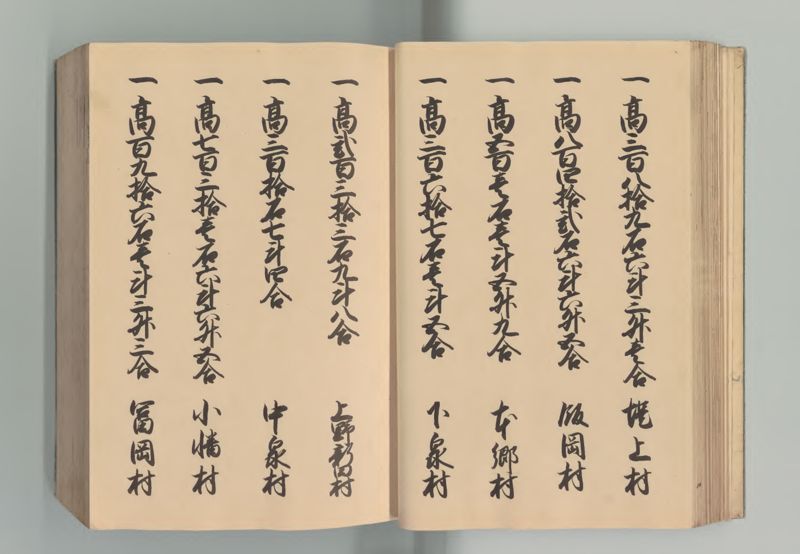 一高三百八拾九石六斗三升壱合 堤上村
一高八百四拾弐石六斗六升五合 飯岡村
一高五百壱石壱斗五升九合 本郷村
一高三百六拾七石壱斗五合 下泉村
一高弐百三拾三石九斗八合 上野新田村
一高三百拾石七斗四合 中泉村
一高七百三拾壱石六斗六升五合 小幡村
一高百九拾六石壱斗三升三合 冨岡村